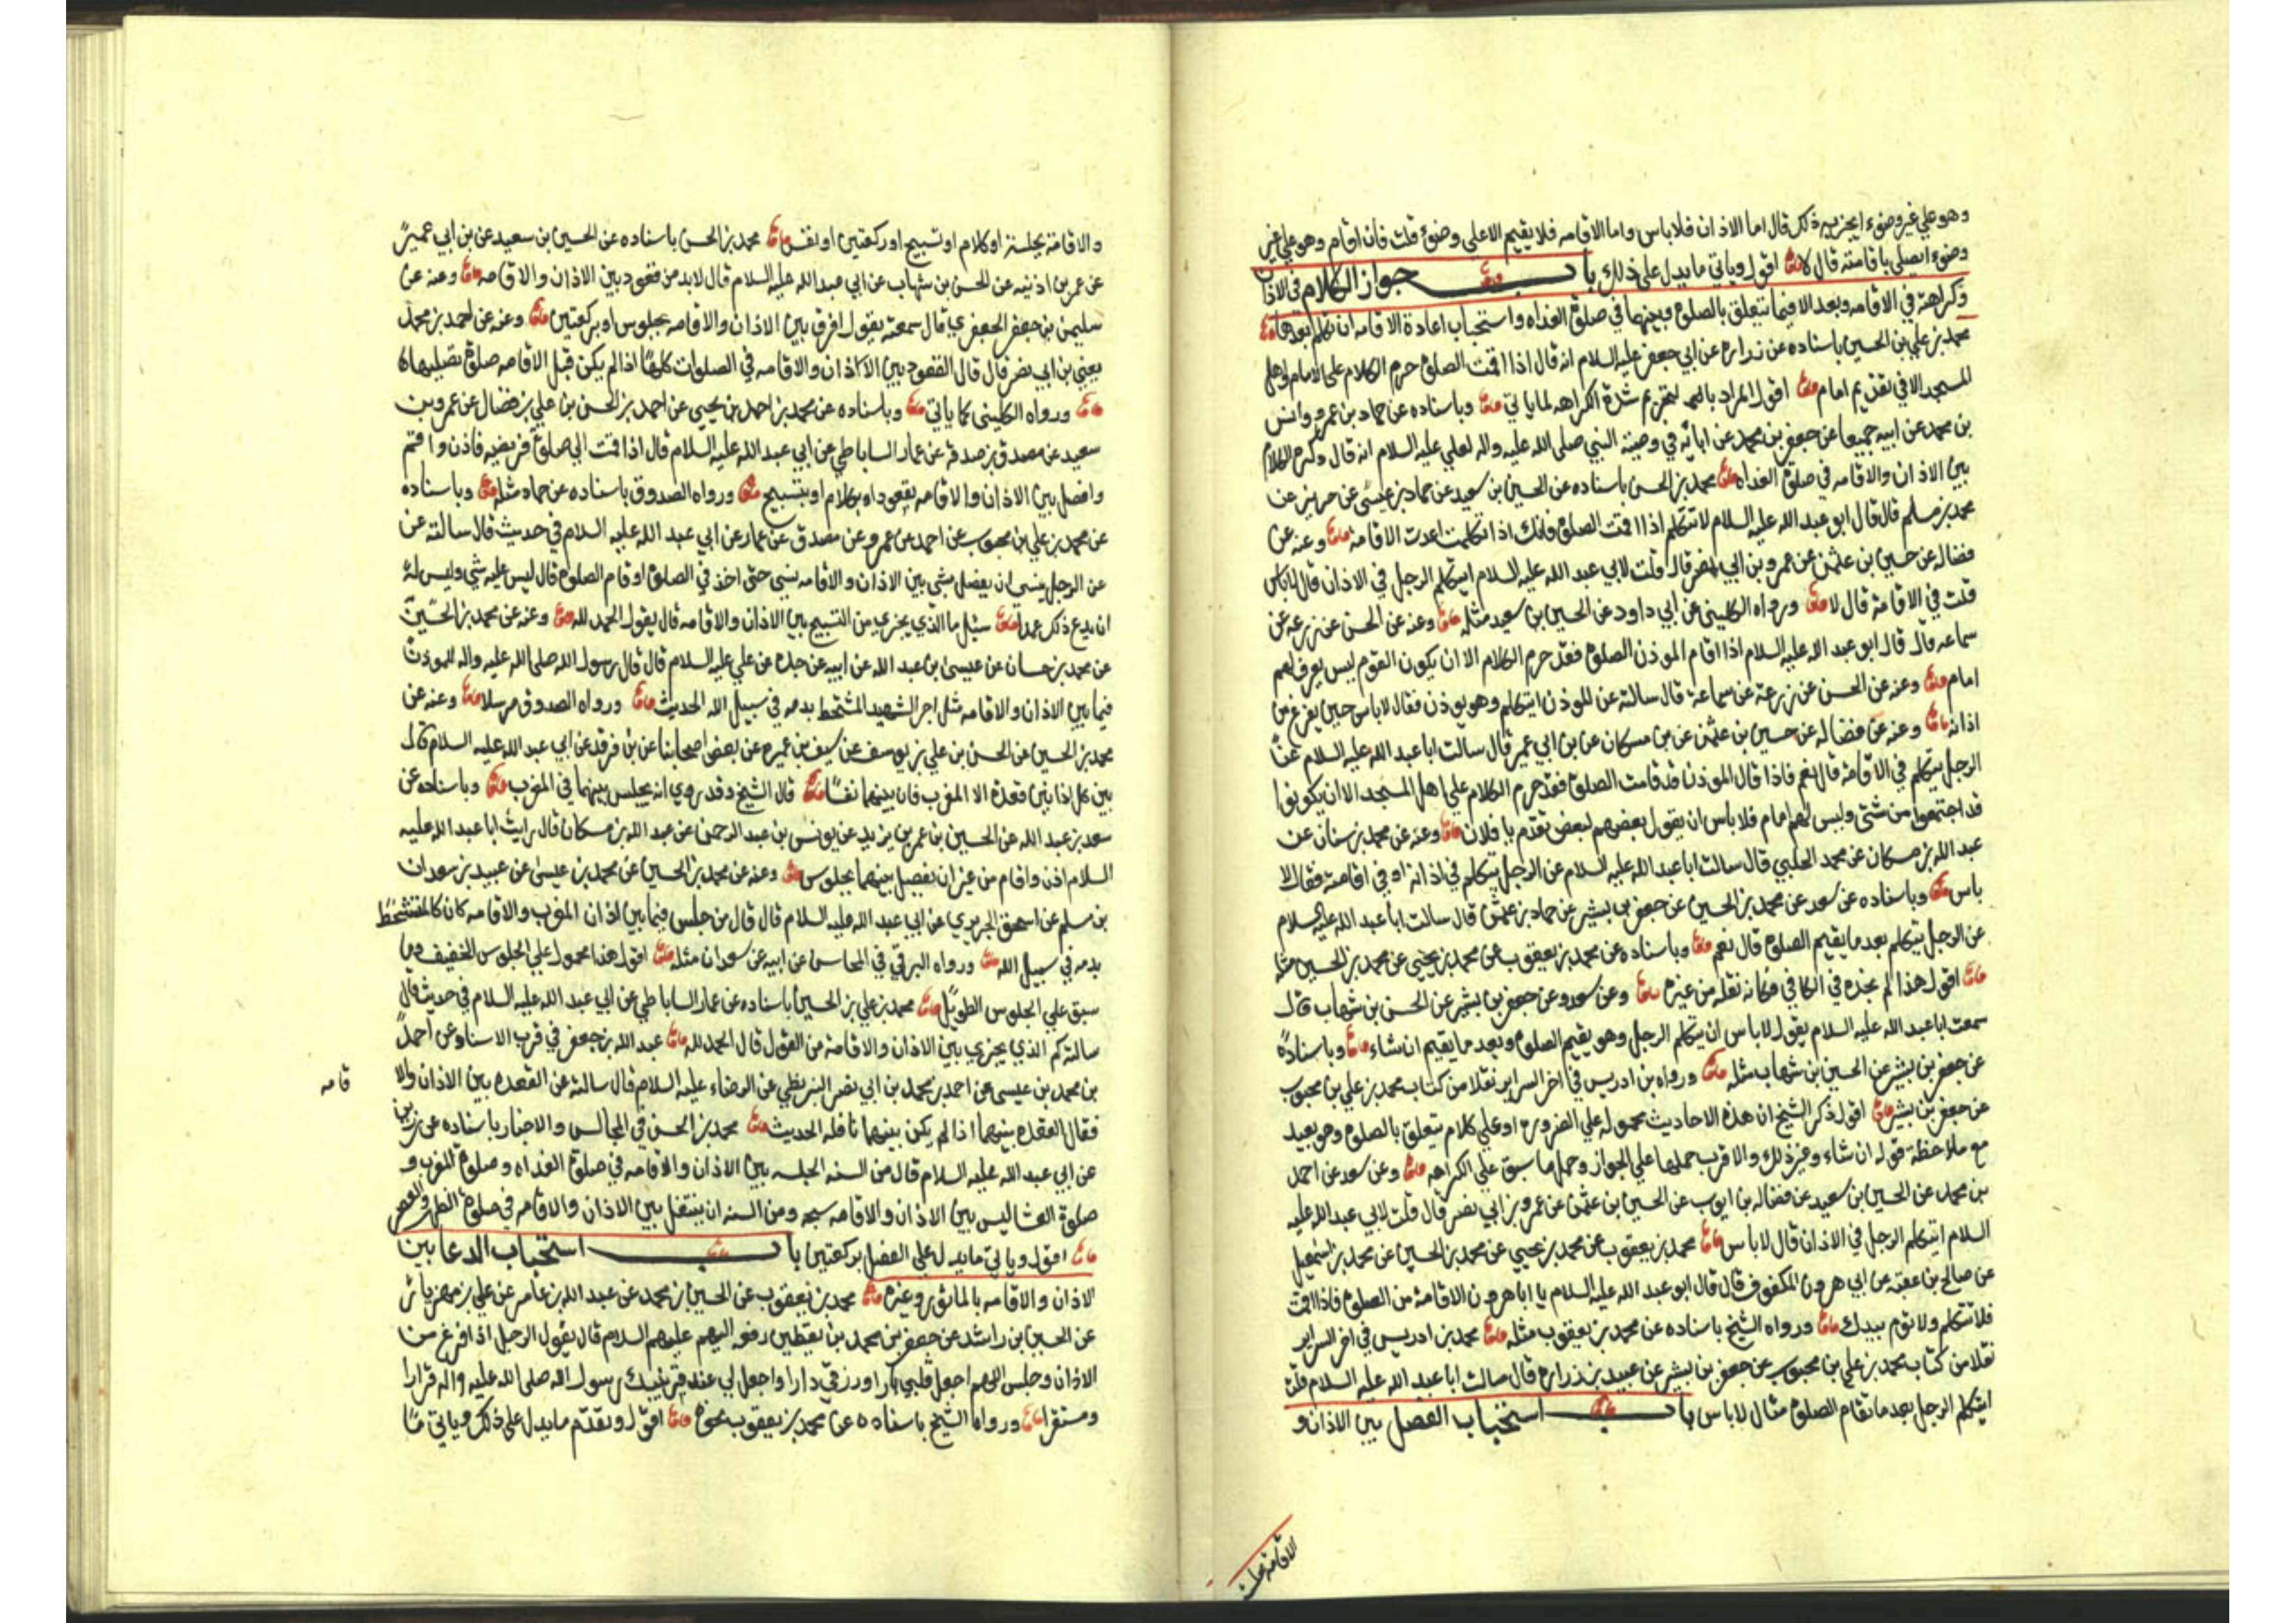 وهو علي غير وضوء ايجزيه ذلك قال اما الاذان فلا باس واما الاقامه فلا يقيم الا على وضوء قلت فان اقام وهو علي غير
وضوء ايصلي باقامته قال لا اقول وياتي ما يدل على ذلك باب جواز الكلام في الاذان
وكراهته في الاقامه وبعدها الا فيما يتعلق بالصلوة وبينهما في صلوة الغداه واستحباب اعادة الاقامه ان تكلم بعدها
محمد بن علي بن الحسين باسناده عن زراره عن ابي جعفر عليه السلام انه قال اذا اقمت الصلوة حرم الكلام على الامام واهل
المسجد الا في تقديم امام اقول المراد بالتحريم شدة الكراهه لما ياتي وباسناده عن حماد بن عمرو وانس
بن محمد عن ابيه جميعا عن جعفر بن محمد عن ابائه في وصية النبي صلى الله عليه واله لعلي عليه السلام انه قال وكره الكلام
بين الاذان والاقامه في صلوة الغداه محمد بن الحسن باسناده عن الحسين بن سعيد عن حماد بن عيسى عن حريز عن
محمد بن مسلم قال قال ابو عبد الله عليه السلام لا تتكلم اذا اقمت الصلوة فانك اذا تكلمت اعدت الاقامه وعنه عن
فضاله عن حسين بن عثمن عن عمرو بن ابي نصر قال قلت لابي عبد الله عليه السلام ايتكلم الرجل في الاذان قال لا باس
قلت في الاقامة قال لا ورواه الكليني عن ابي داود عن الحسين بن سعيد مثله وعنه عن الحسن عن زرعه عن
سماعه قال قال ابو عبد الله عليه السلام اذا اقام الموذن الصلوة فقد حرم الكلام الا ان يكون القوم ليس يعرف لهم
امام وعنه عن الحسن عن زرعة عن سماعة قال سالته عن الموذن ايتكلم وهو يوذن فقال لا باس حين يفرغ من
اذانه وعنه عن فضاله عن حسين بن عثمن عن بن مسكان عن بن ابي عمير قال سالت ابا عبد الله عليه السلام عن
الرجل يتكلم في الاقامة قال نعم فاذا قال الموذن قد قامت الصلوة فقد حرم الكلام علي اهل المسجد الا ان يكونوا
قد اجتمعوا من شتى وليس لهم امام فلا باس ان يقول بعضهم لبعض تقدم يا فلان وعنه عن محمد بن سنان عن
عبد الله بن مسكان عن محمد الحلبي قال سالت ابا عبد الله عليه السلام عن الرجل يتكلم في اذانه او في اقامته فقال لا
باس وباسناده عن سعد عن محمد بن الحسين عن جعفر بن بشير عن حماد بن عثمن قال سالت ابا عبد الله عليه السلام
عن الرجل يتكلم بعد ما يقيم الصلوة قال نعم وباسناده عن محمد بن يعقوب عن محمد بن يحيى عن محمد بن الحسين مثله
اقول هذا لم نجده في الكافي فكانه نقله من غيره وعن سعد وعن جعفر بن بشير عن الحسن بن شهاب قال
سمعت ابا عبد الله عليه السلام يقول لا باس ان يتكلم الرجل وهو يقيم الصلوة وبعد ما يقيم ان شاء وباسناده
عن جعفر بن بشير عن الحسين بن شهاب مثله ورواه بن ادريس في اخر السراير نقلا من كتاب محمد بن علي بن محبوب
عن جعفر بن بشير اقول ذكر الشيخ ان هذه الاحاديث محموله علي الضروره او علي كلام يتعلق بالصلوة وهو بعيد
مع ملاحظة قوله ان شاء وغير ذلك والاقرب حملها علي الجواز وحمل ما سبق علي الكراهه وعن سعد عن احمد
بن محمد عن الحسين بن سعيد عن فضاله بن ايوب عن الحسين بن عثمن عن عمرو بن ابي نصر قال قلت لابي عبد الله عليه
السلام ايتكلم الرجل في الاذان قال لا باس محمد بن يعقوب عن محمد بن يحيي عن محمد بن الحسين عن محمد بن اسمعيل
عن صالح بن عقبه عن ابي هرون المكفوف قال قال ابو عبد الله عليه السلام يا ابا هرون الاقامة من الصلوة فاذا اقمت
فلا تتكلم ولا توم بيدك ورواه الشيخ باسناده عن محمد بن يعقوب مثله محمد بن ادريس في اخر السراير
نقلا من كتاب محمد بن علي بن محبوب عن جعفر بن بشير عن عبيد بن زراره قال سالت ابا عبد الله عليه السلام قلت
ايتكلم الرجل بعد ما تقام الصلوة قال لا باس باب استحباب الفصل بين الاذان و
الاقامة بجلسة
والاقامة بجلسة او كلام او تسبيح او ركعتين او نفس محمد بن الحسن باسناده عن الحسين بن سعيد عن بن ابي عمير
عن عمر بن اذنيه عن الحسن بن شهاب عن ابي عبد الله عليه السلام قال لا بد من قعود بين الاذان والاقامه وعنه عن
سليمن بن جعفر الجعفري قال سمعته يقول افرق بين الاذان والاقامه بجلوس او بركعتين وعنه عن احمد بن محمد
يعني بن ابي نصر قال قال القعود بين الاذان والاقامه في الصلوات كلها اذا لم يكن قبل الاقامه صلوة تصليها
ورواه الكليني كما ياتي وباسناده عن محمد بن احمد بن يحيى عن احمد بن الحسن بن علي بن فضال عن عمرو بن
سعيد عن مصدق بن صدقه عن عمار الساباطي عن ابي عبد الله عليه السلام قال اذا قمت الي صلوة فريضه فاذن واقم
وافصل بين الاذان والاقامه بقعود او بكلام او بتسبيح ورواه الصدوق باسناده عن عمار مثله وباسناده
عن محمد بن علي بن محبوب عن احمد عن عمرو عن مصدق عن عمار عن ابي عبد الله عليه السلام في حديث قال سالته عن
عن الرجل ينسى ان يفصل بشي بين الاذان والاقامه بشي حتى اخذ في الصلوة او قام الصلوة قال ليس عليه شي وليس له
ان يدع ذلك عمدا سئل ما الذي يجزي من التسبيح بين الاذان والاقامه قال يقول الحمد لله وعنه عن محمد بن الحسين
عن محمد بن حسان عن عيسى بن عبد الله عن ابيه عن جده عن علي عليه السلام قال قال رسول الله صلى الله عليه واله للموذن
فيما بين الاذان والاقامه مثل اجر الشهيد المتشحط بدمه في سبيل الله الحديث ورواه الصدوق مرسلا وعنه عن
محمد بن الحسين عن الحسن بن علي بن يوسف عن سيف بن عميره عن بعض اصحابنا عن بن فرقد عن ابي عبد الله عليه السلام قال
بين كل اذانين قعدة الا المغرب فان بينهما نفسا قال الشيخ وقد روي انه يجلس بينهما في المغرب وباسناده عن
سعد بن عبد الله عن الحسين بن عمر بن يزيد عن يونس بن عبد الرحمن عن عبد الله بن مسكان قال رايت ابا عبد الله عليه
السلام اذن واقام من غير ان يفصل بينهما بجلوس وعنه عن محمد بن الحسين عن محمد بن عيسى عن عبيد بن سعدان
بن مسلم عن اسحق الجريري عن ابي عبد الله عليه السلام قال قال من جلس فيما بين اذان المغرب والاقامه كان كالمتشحط
بدمه في سبيل الله ورواه البرقي في المحاسن عن ابيه عن سعدان مثله اقول هذا محمول علي الجلوس الخفيف وما
سبق علي الجلوس الطويل محمد بن علي بن الحسين باسناده عن عمار الساباطي عن ابي عبد الله عليه السلام في حديث قال
سالته كم الذي يجزي بين الاذان والاقامة من القول قال الحمد لله عبد الله بن جعفر في قرب الاسناد عن احمد
بن محمد بن عيسى عن احمد بن محمد بن ابي نصر البزنطي عن الرضاء عليه السلام قال سالته عن القعده بين الاذان والا
قامه
فقال القعده بينهما اذا لم يكن بينهما نافله الحديث محمد بن الحسن في المجالس والاخبار باسناده عن رزيق
عن ابي عبد الله عليه السلام قال من السنه الجلسه بين الاذان والاقامه في صلوة الغداه وصلوة المغرب و
صلوة العشا ليس بين الاذان والاقامه سبحه ومن السنه ان يتنفل بين الاذان والاقامه في صلوة الظهر والعصر
اقول وياتي ما يدل علي الفصل بركعتين باب استحباب الدعا بين
الاذان والاقامه بالماثور وغيره محمد بن يعقوب عن الحسين بن محمد عن عبد الله بن عامر عن علي بن مهزيار
عن الحسين بن راشد عن جعفر بن محمد بن يقطين رفعه اليهم عليهم السلام قال يقول الرجل اذا فرغ من
الاذان وجلس اللهم اجعل قلبي بارا ورزقي دارا واجعل لي عند قبر نبيك رسول الله صلى الله عليه واله قرارا
ومستقرا ورواه الشيخ باسناده عن محمد بن يعقوب نحوه اقول وتقدم ما يدل على ذلك وياتي ما